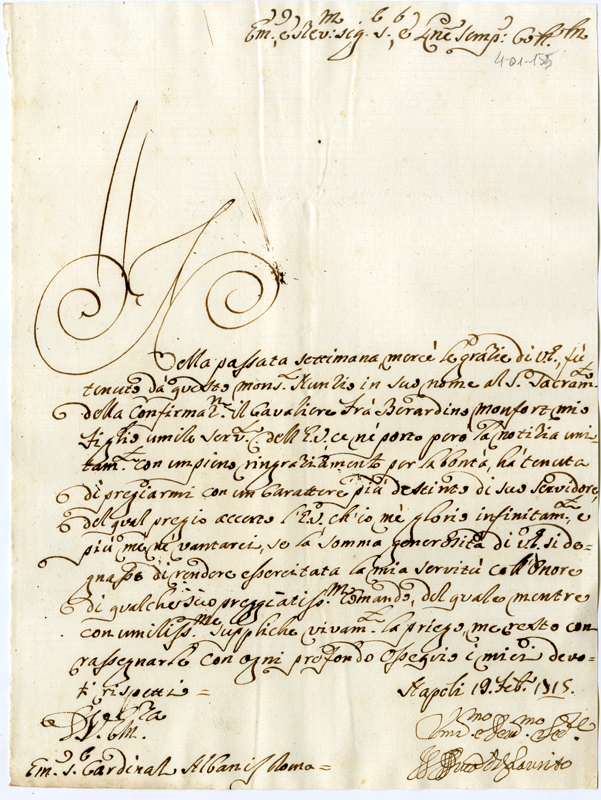 Em.o e Rev.mo Sig. S.e, e Pne Semp.e Coll.mo
4-01-155
Nella passata settimana, mercè le grazie di V.E., fù
tenuto dà questo mons.r Nunzio in suo nome al S.o Sacram.to
della Confirmaz.ne il Cavaliere Frà Berardino Monfort mio
figlio umile serv.e dell'E.V. ce né porto però la notizia umi-
tam.te con un pieno ringraziamento per la bontà, hà tenuta
di pregiarmi con un Carattere più destinto di suo servidore,
del qual pregio accerto l'E.V. ch'io mè glorio infinitam.te, e
più me né vantarei, se la somma generosità di V.E. si de-
gnasse di rendere essercitata la mia servitù coll'onore
di qualche suo preggiatiss.mo comando, del quale mentre
con umiliss.me suppliche vivam.te la priego, me resto con
rassegnarle con ogni profondo ossequio i miei devo-
ti rispetti =
Napoli 19 Feb.o 1715.
Di V. Em.
Um.mo e Dev.mo Ser.
Em. S. Cardinal Albani = Roma =
di Laurito